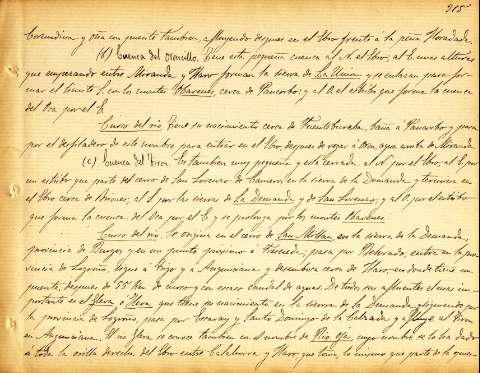 915
y otra con puente tambien, afluyendo despues en el Ebro frente a la peña Horadada.
(b) Cuenca del Oroncillo. Tiene esta pequeña cuenca al N. el Ebro, al E. unas alturas
que empezando entre Miranda y Haro forman la sierra de y se enlazan para for-
mar el límite S. con los montes Obarenes, cerca de Pancorbo; y al O. el estribo que forma la cuenca
del Oca por el E.
Curso del rio. Tiene su nacimiento cerca de Fuentebureba, baña á Pancorbo y pasa
por el desfiladero de este nombre para entrar en el Ebro, despues de regar á Orón, agua arriba de Miranda
(c) Cuenca del Tiron. Es tambien muy pequeña y está cerrada al N. por el Ebro, al E. por
un estribo que parte del cerro de San Lorenzo de Cameros, en la sierra de la Demanda y termina en
el Ebro cerca de Briones, al S. por las sierras de la Demanda y de San Lorenzo, y al O. por el estribo
que forma la cuenca del Oca por el E. y se prolonga por los montes Obarenes.
Curso del rio. Se origina en el cerro de San Millan, en la sierra de la Demanda,
provincia de Burgos y en un punto próximo á Fresneda, pasa por Belorado, entra en la pro-
vincia de Logroño, riega á Tirgo y á Anguciana y desemboca cerca de Haro, en donde tiene un
puente, despues de 55 Km. de curso y con escaso caudal de aguas. De todos sus afluentes el mas im-
portante es el Glera ó Ilera que tiene su nacimiento en la sierra de la Demanda y siguiendo por
la provincia de Logroño, pasa por Ezcaray y Santo Domingo de la Calzada y afluye al Tiron
en Anguciana. El rio Glera se conoce tambien con el nombre de Rio Oja, cuyo nombre se lo ha dado
á toda la orilla derecha del Ebro entre Calahorra y Haro que toma, lo mismo que parte de la izquier-